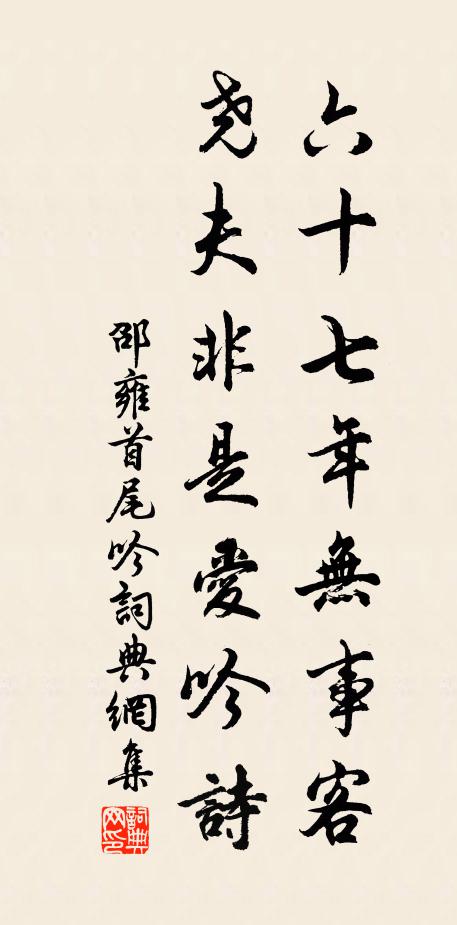 六十七年無事客
堯夫非是愛吟詩
邵雍首尾吟詞典網集
詞典網印